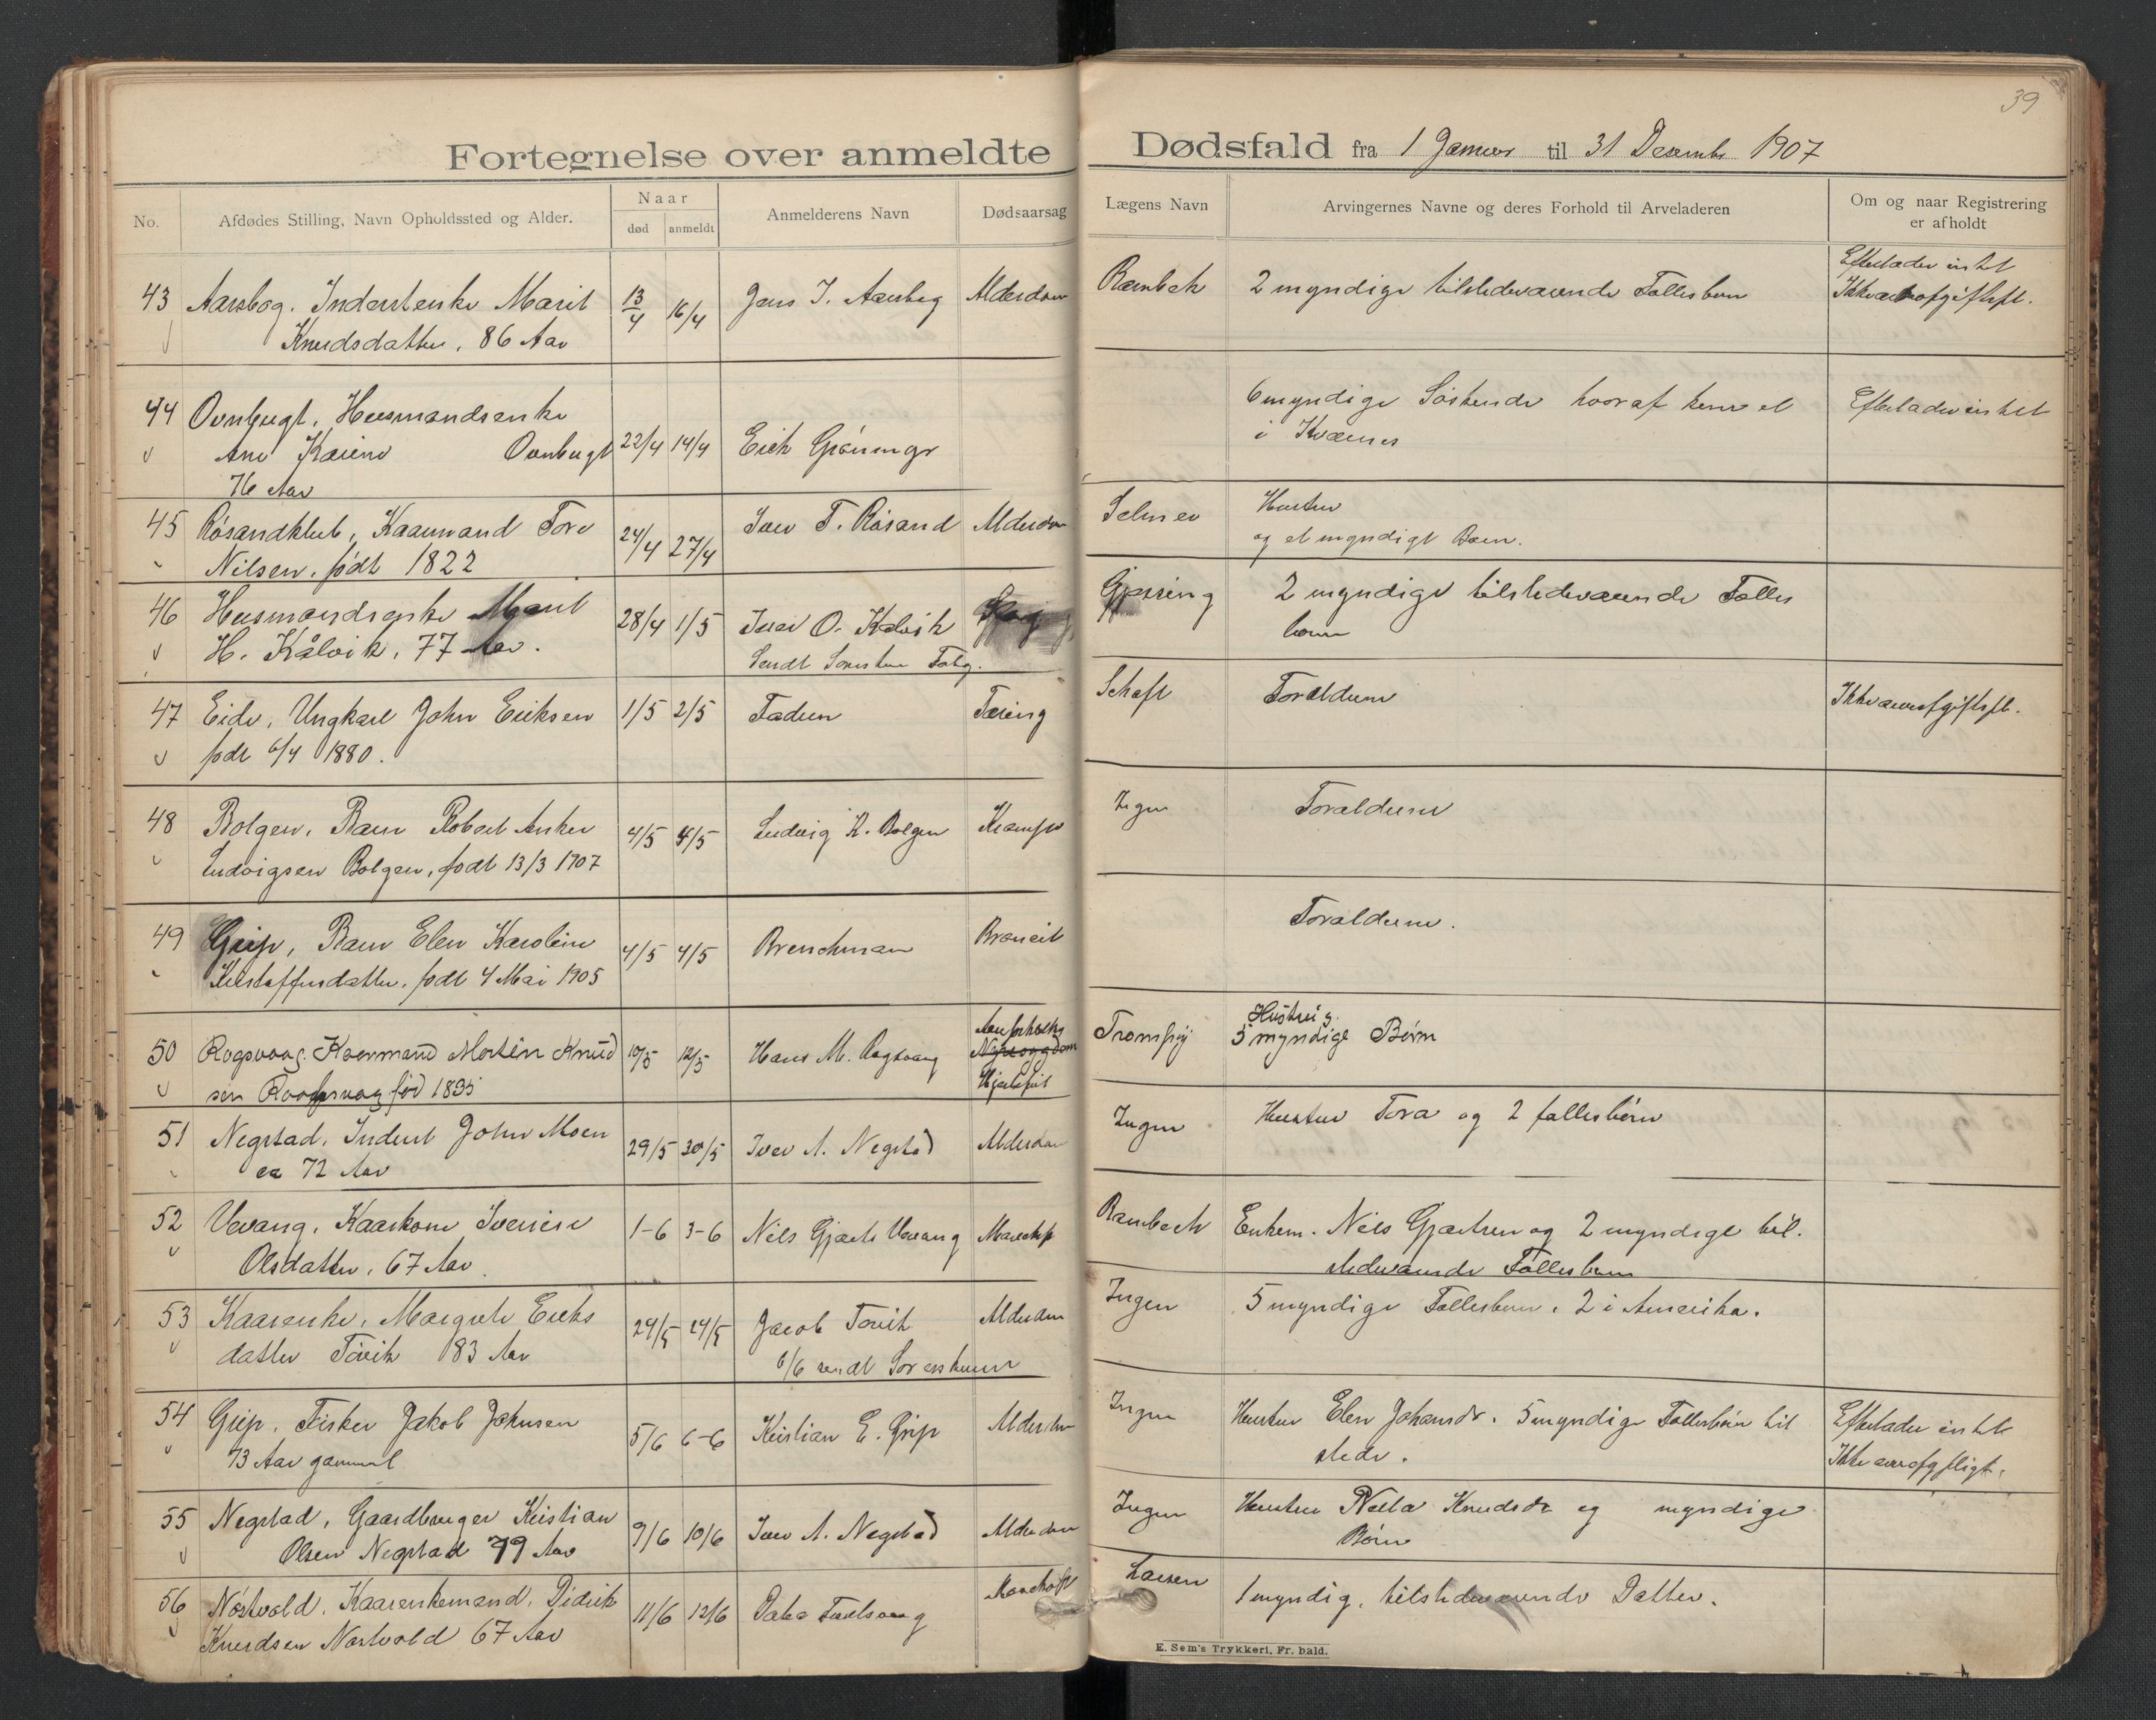 39
Fortegnelse over anmeldte Dødsfald fra 1 Januar til 31 Desembr 1907
No. Afdødes Stilling, Navn Opholdssted og Alder. Naar død anmeldt Anmelderens Navn Dødsaarsag Lægens Navn Arvingernes Navne og deres Forhold til Arveladeren Om og naar Registrering er afholdt
43 Aarsbog. Inderstenke Marit 13/4 16/4 Jens J. Aarsbog Alderdom Rambech 2 myndige tilstedeværende Fællesbørn Efterlader intet
Knudsdatter, 86 Aar Ikke arveafgiftspl.
44 Ovnbugt. Husmandsenke 6 myndige Søskende hvoraf kun et Efterlader intet
Ane Karine Ovnbugt 22/4 14/4 Erik Grønmyr i Kværnes
76 Aar
45 Røsandklub, Kaarmand Tore 24/4 27/4 Iver T. Røsand Alderdom Selmer Hustru
Nilsen, født 1822 og et myndigt Barn.
46 Husmandsenke Marit 28/4 1/5 Iver O. Kalvik Gjøring 2 myndige tilstedeværende Fælles
H. Kålvik, 77 Aar. Sendt Sorenskr. børn
47 Eide, Ungkarl John Eriksen 1/5 2/5 Faderen Tæring Schaft Forældrene Ikke arveafgiftspl.
født 6/4 1880.
48 Bolgen, Barn Robert Anker 4/5 4/5 Ludvig K. Bolgen Krampe Ingen Forældrene
Ludvigsen Bolgen, født 13/3 1907
49 Grip, Barn Elen Karoline 4/5 4/5 Brenchman Bronkit Forældrene.
Kristoffersdatter, født 4 Mai 1905
50 Rogsvaag. Kaarmand Morten Knud 10/5 12/5 Hans M. Rogsvaag Hjertefeil Hustru
sen Rogsvaag fød 1835 5 myndige Børn
51 Negstad. Inderst John Moen 29/5 30/5 Iver A. Negstad Alderdom Ingen Hustru Tora og 2 fællesbørn
ca 72 Aar
52 Vevang. Kaarkone Iverine 1-6 3-6 Nils Gjerts Vevang Rambech Enkem. Nils Gjertsen og 2 myndige til.
Olsdatter, 67 Aar stedeværende Fællesbørn
53 Kaarenke, Margrete Eriks 24/5 24/5 Jacob Tøvik Alderdom Ingen 5 myndige Fællesbørn, 2 i Amerika.
datter Tøvik 83 Aar 6/6 sendt Sorenskriveren
54 Grip. Fisker Jakob Johnsen 5/6 6-6 Kristian E. Grip Alderdom Ingen Hustru Elen Johansdr. 5 myndige Fællesbørn til Efterlader intet
73 Aar gammel stede. Ikke arveafgpligt.
55 Negstad, Gaardbruger Kristian 9/6 10/6 Iver A. Negstad Alderdom Ingen Hustru Knudsdr og myndige
Olsen Negstad 79 Aar Børn
56 Nøstvold. Kaarenkemand. Didrik 11/6 12/6 Larsen 1 myndig, tilstedeværende Datter.
Knudsen Nøstvold 67 Aar
E. Sem's Trykkeri, Fr. hald.